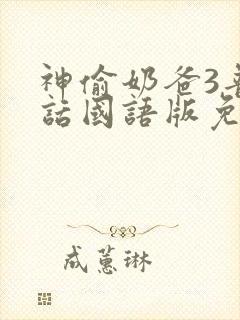 神偷奶爸3
話國語版免
成蕙琳